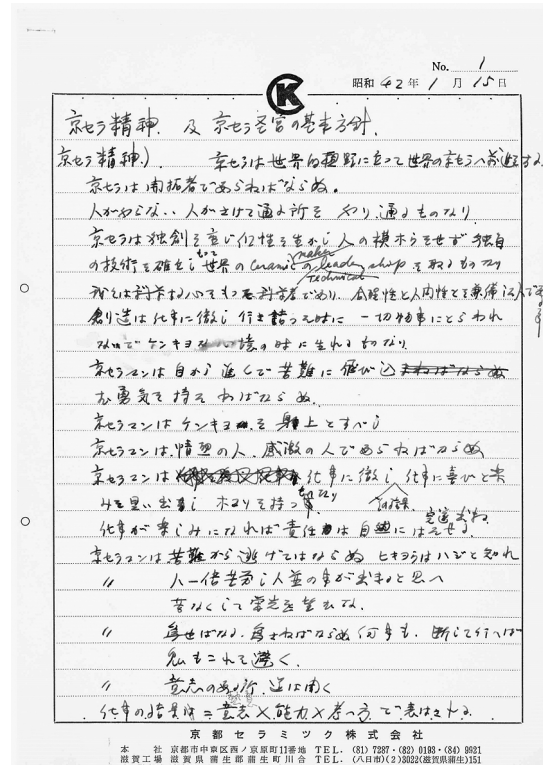 No. 1
昭和 42 年 1 月 15 日
CK
京セラ精神 及 京セラ経営の基本方針
京セラ精神) 京セラは世界的視野に立って世界の京セラへ前進する
京セラは開拓者であらねばならぬ。
人がやらない、人がさけて通る所を やり、通るものなり
京セラは独創を重び個性を生かし人の模ホウをせず独自
の技術を確立し もって 世界の ceramic maker の leader shop を取るものなり
technical
我々は科学する心をもつ科学者であり、合理性と人間性とを兼備る人である
創造は仕事に徹し行き詰った時に 一切物事にとらわれ
ないでケンキョな 境の時に生れるものなり
京セラマンは自から進んで苦難に飛び込
む勇気を持たねばならぬ
京セラマンはケンキョを身上とすべし
京セラマンは情熱の人、感激の人であらねばならぬ
京セラマンは 仕事に徹し 仕事に喜びと楽
みを見い出し ホコリを持つ なり
その結果
仕事が楽しみになれば責任は自 にはたせる 完遂出来
京セラマンは苦難から逃げてはならぬ ヒキョウはハジと知れ
〃 人一倍苦労し人並の事が出来ると思へ
苦なくして栄光を望むな
〃 為せばなる、為さねばならぬ何事も、断じて行へば
鬼もこれて避く
〃 意志のある所、道は開く
仕事の結果は=意志×能力×考へ方で表はされる
熱意
京都セラミック株式会社
本社 京都市中京区西ノ京原町11番地 TEL. (81) 7287・(82) 0193・(84) 9931
滋賀工場 滋賀県蒲生郡蒲生町川合 TEL. (八日市) (2) 3022(蒲生町)151